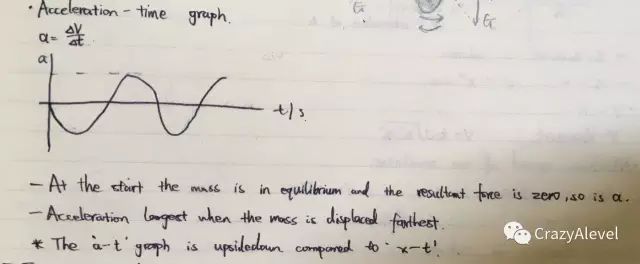 · Acceleration - time graph.
a = ΔV/Δt
a
t/s
- At the start the mass is in equilibrium and the resultant force is zero, so is a.
- Acceleration largest when the mass is displaced farthest.
* The 'a-t' graph is upsidedown compared to 'x-t'.
CrazyAlevel